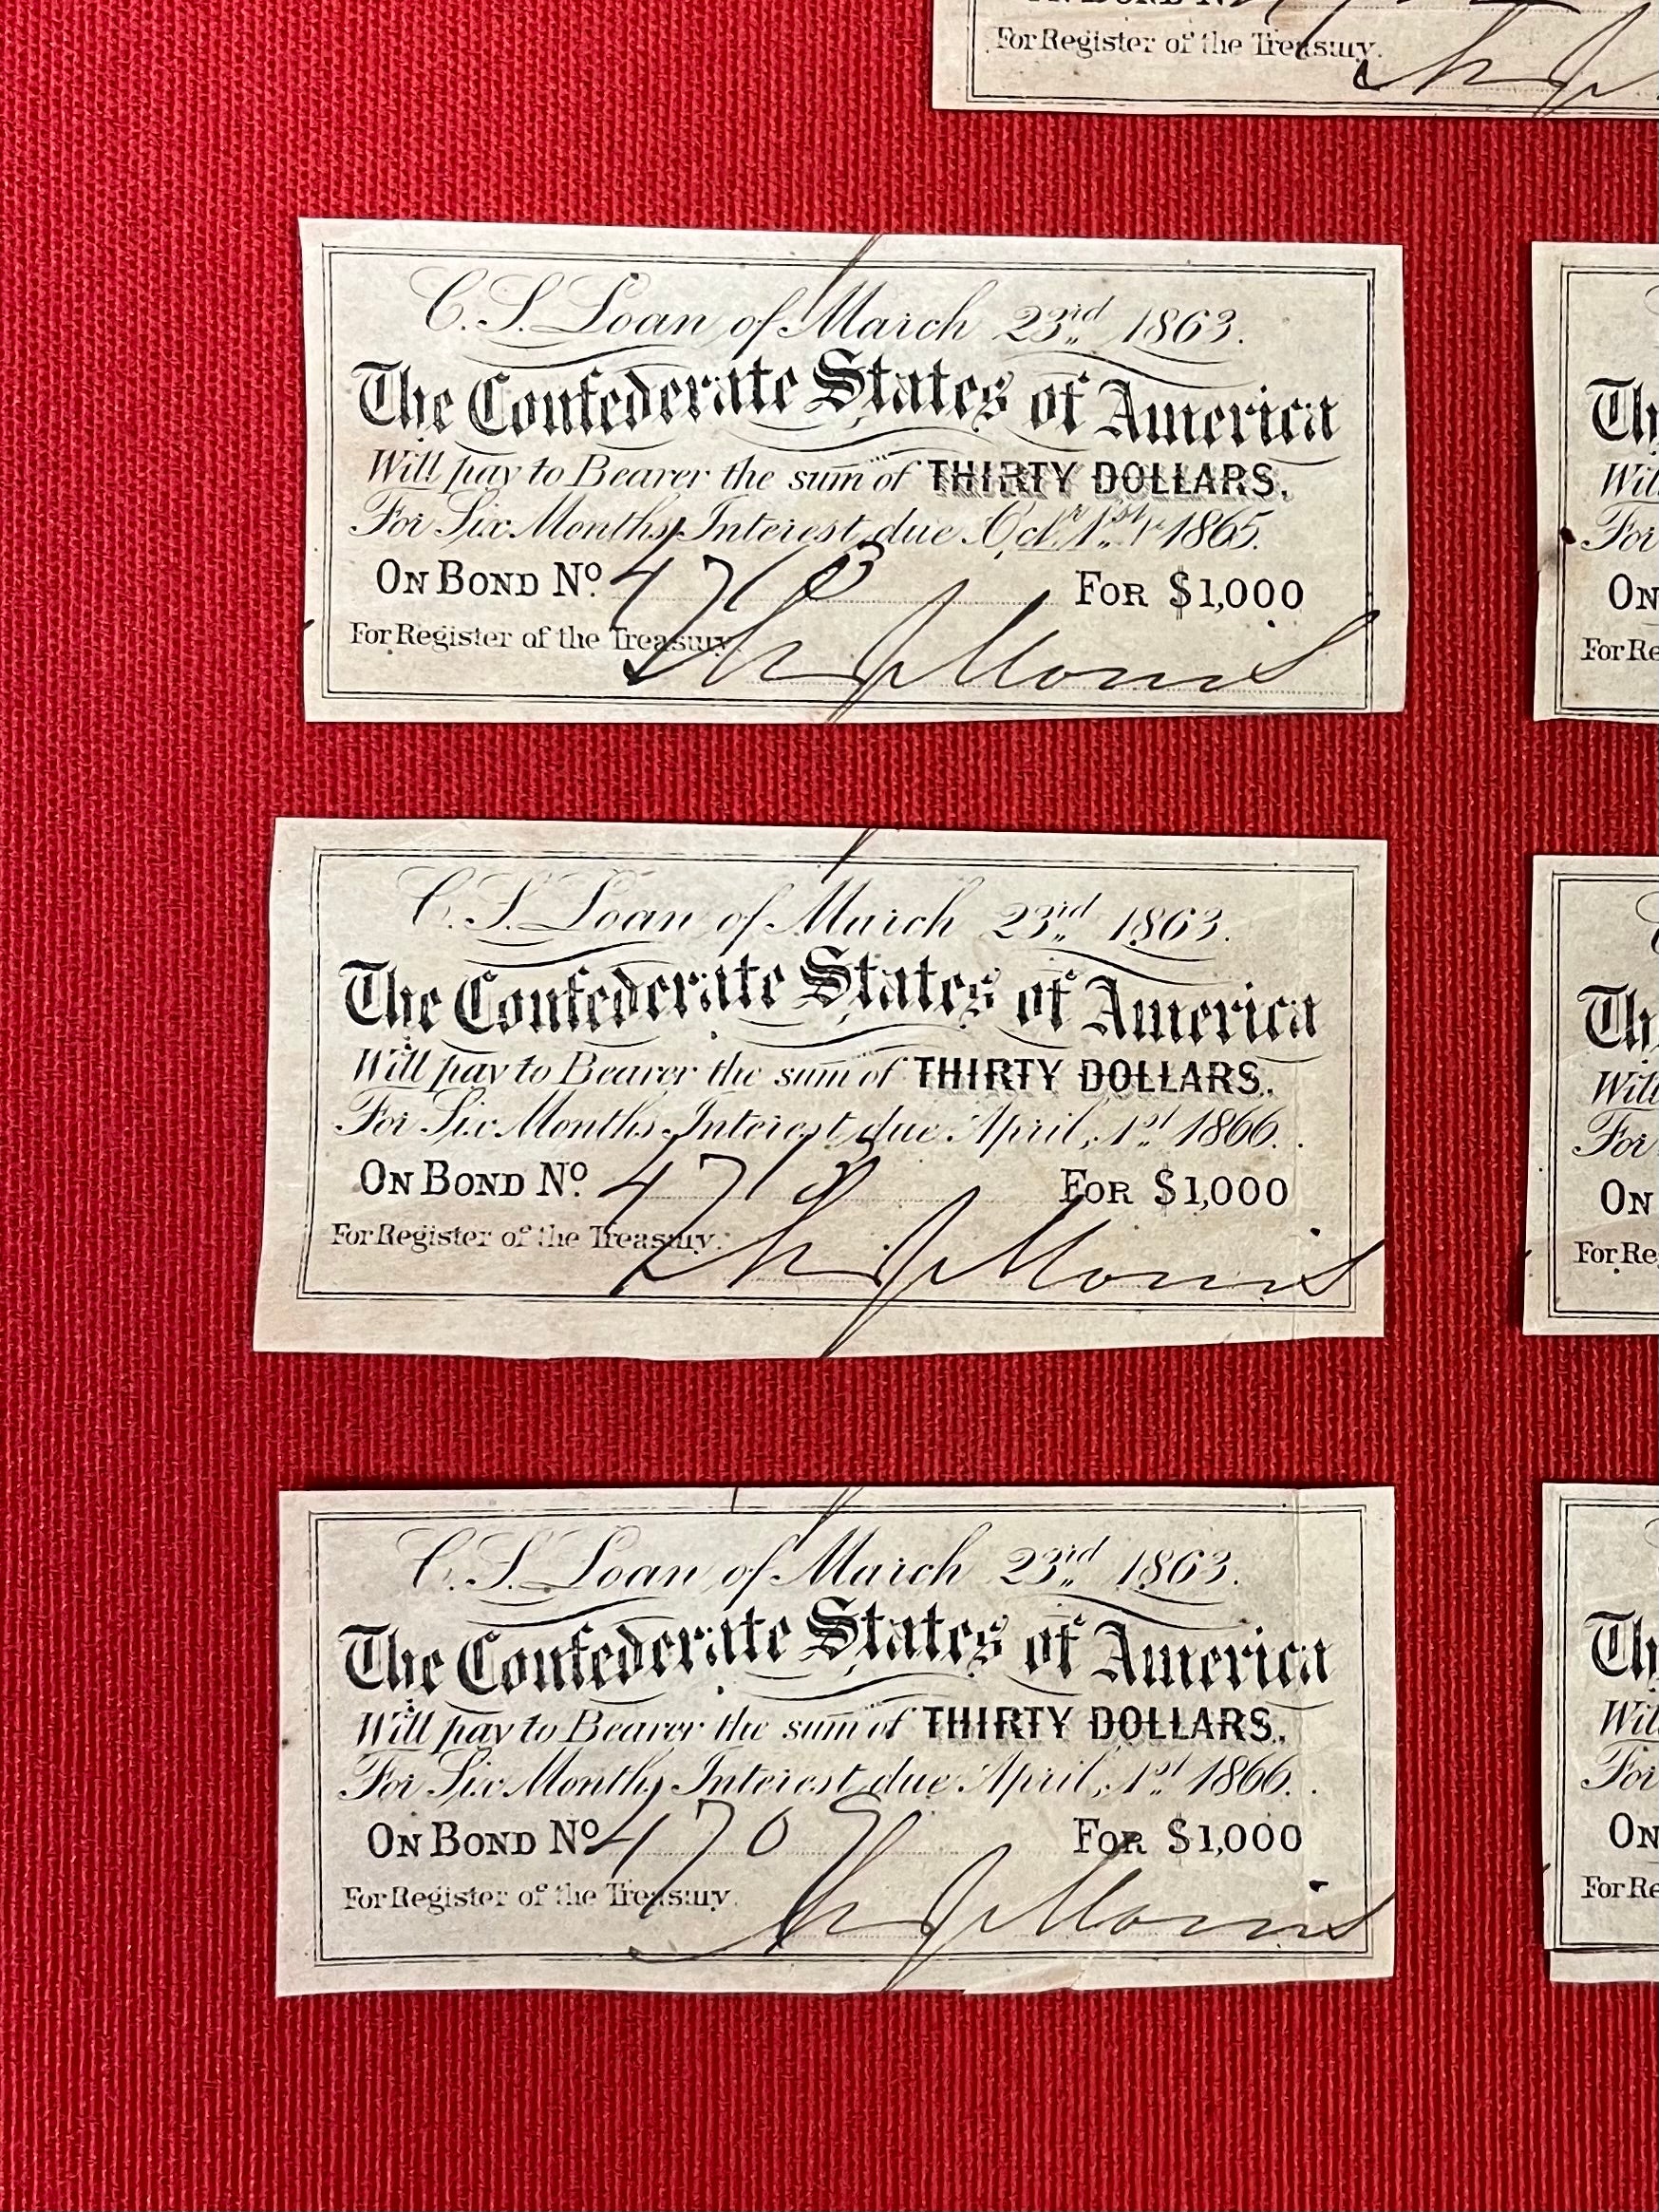 For Register of the Treasury.
C.S. Loan of March 23rd 1863.
The Confederate States of America
Will pay to Bearer the sum of THIRTY DOLLARS.
For Six Months Interest due Oct. 1st 1865.
ON BOND No. FOR $1,000
For Register of the Treasury
C.S. Loan of March 23rd 1863.
The Confederate States of America
Will pay to Bearer the sum of THIRTY DOLLARS.
For Six Months Interest due April, 1st 1866.
ON BOND No. FOR $1,000
For Register of the Treasury.
C.S. Loan of March 23rd 1863.
The Confederate States of America
Will pay to Bearer the sum of THIRTY DOLLARS.
For Six Months Interest due April, 1st 1866.
ON BOND No. 4709 FOR $1,000
For Register of the Treasury.